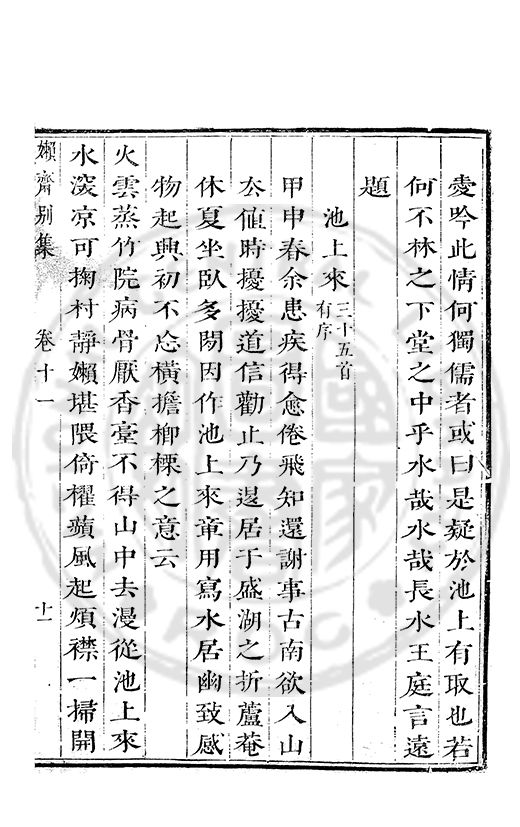 妻吟此情何獨儒者或曰是疑於池上有取也若
何不林之下堂之中乎水哉水哉長水王庭言遠
題
池上來三十五首有序
甲申春余患疾得愈倦飛知還謝事古南欲入山
厺値時擾擾道信勸止乃退居于盛湖之折蘆菴
休夏坐臥多閒因作池上來章用寫水居幽致感
物起興初不忘橫擔楖㮚之意云
火雲蒸竹院病骨厭香臺不得山中去漫從池上來
水深凉可掬村靜嬾堪隈倚櫂蘋風起煩襟一掃開
嬾齋別集 卷十一 十一